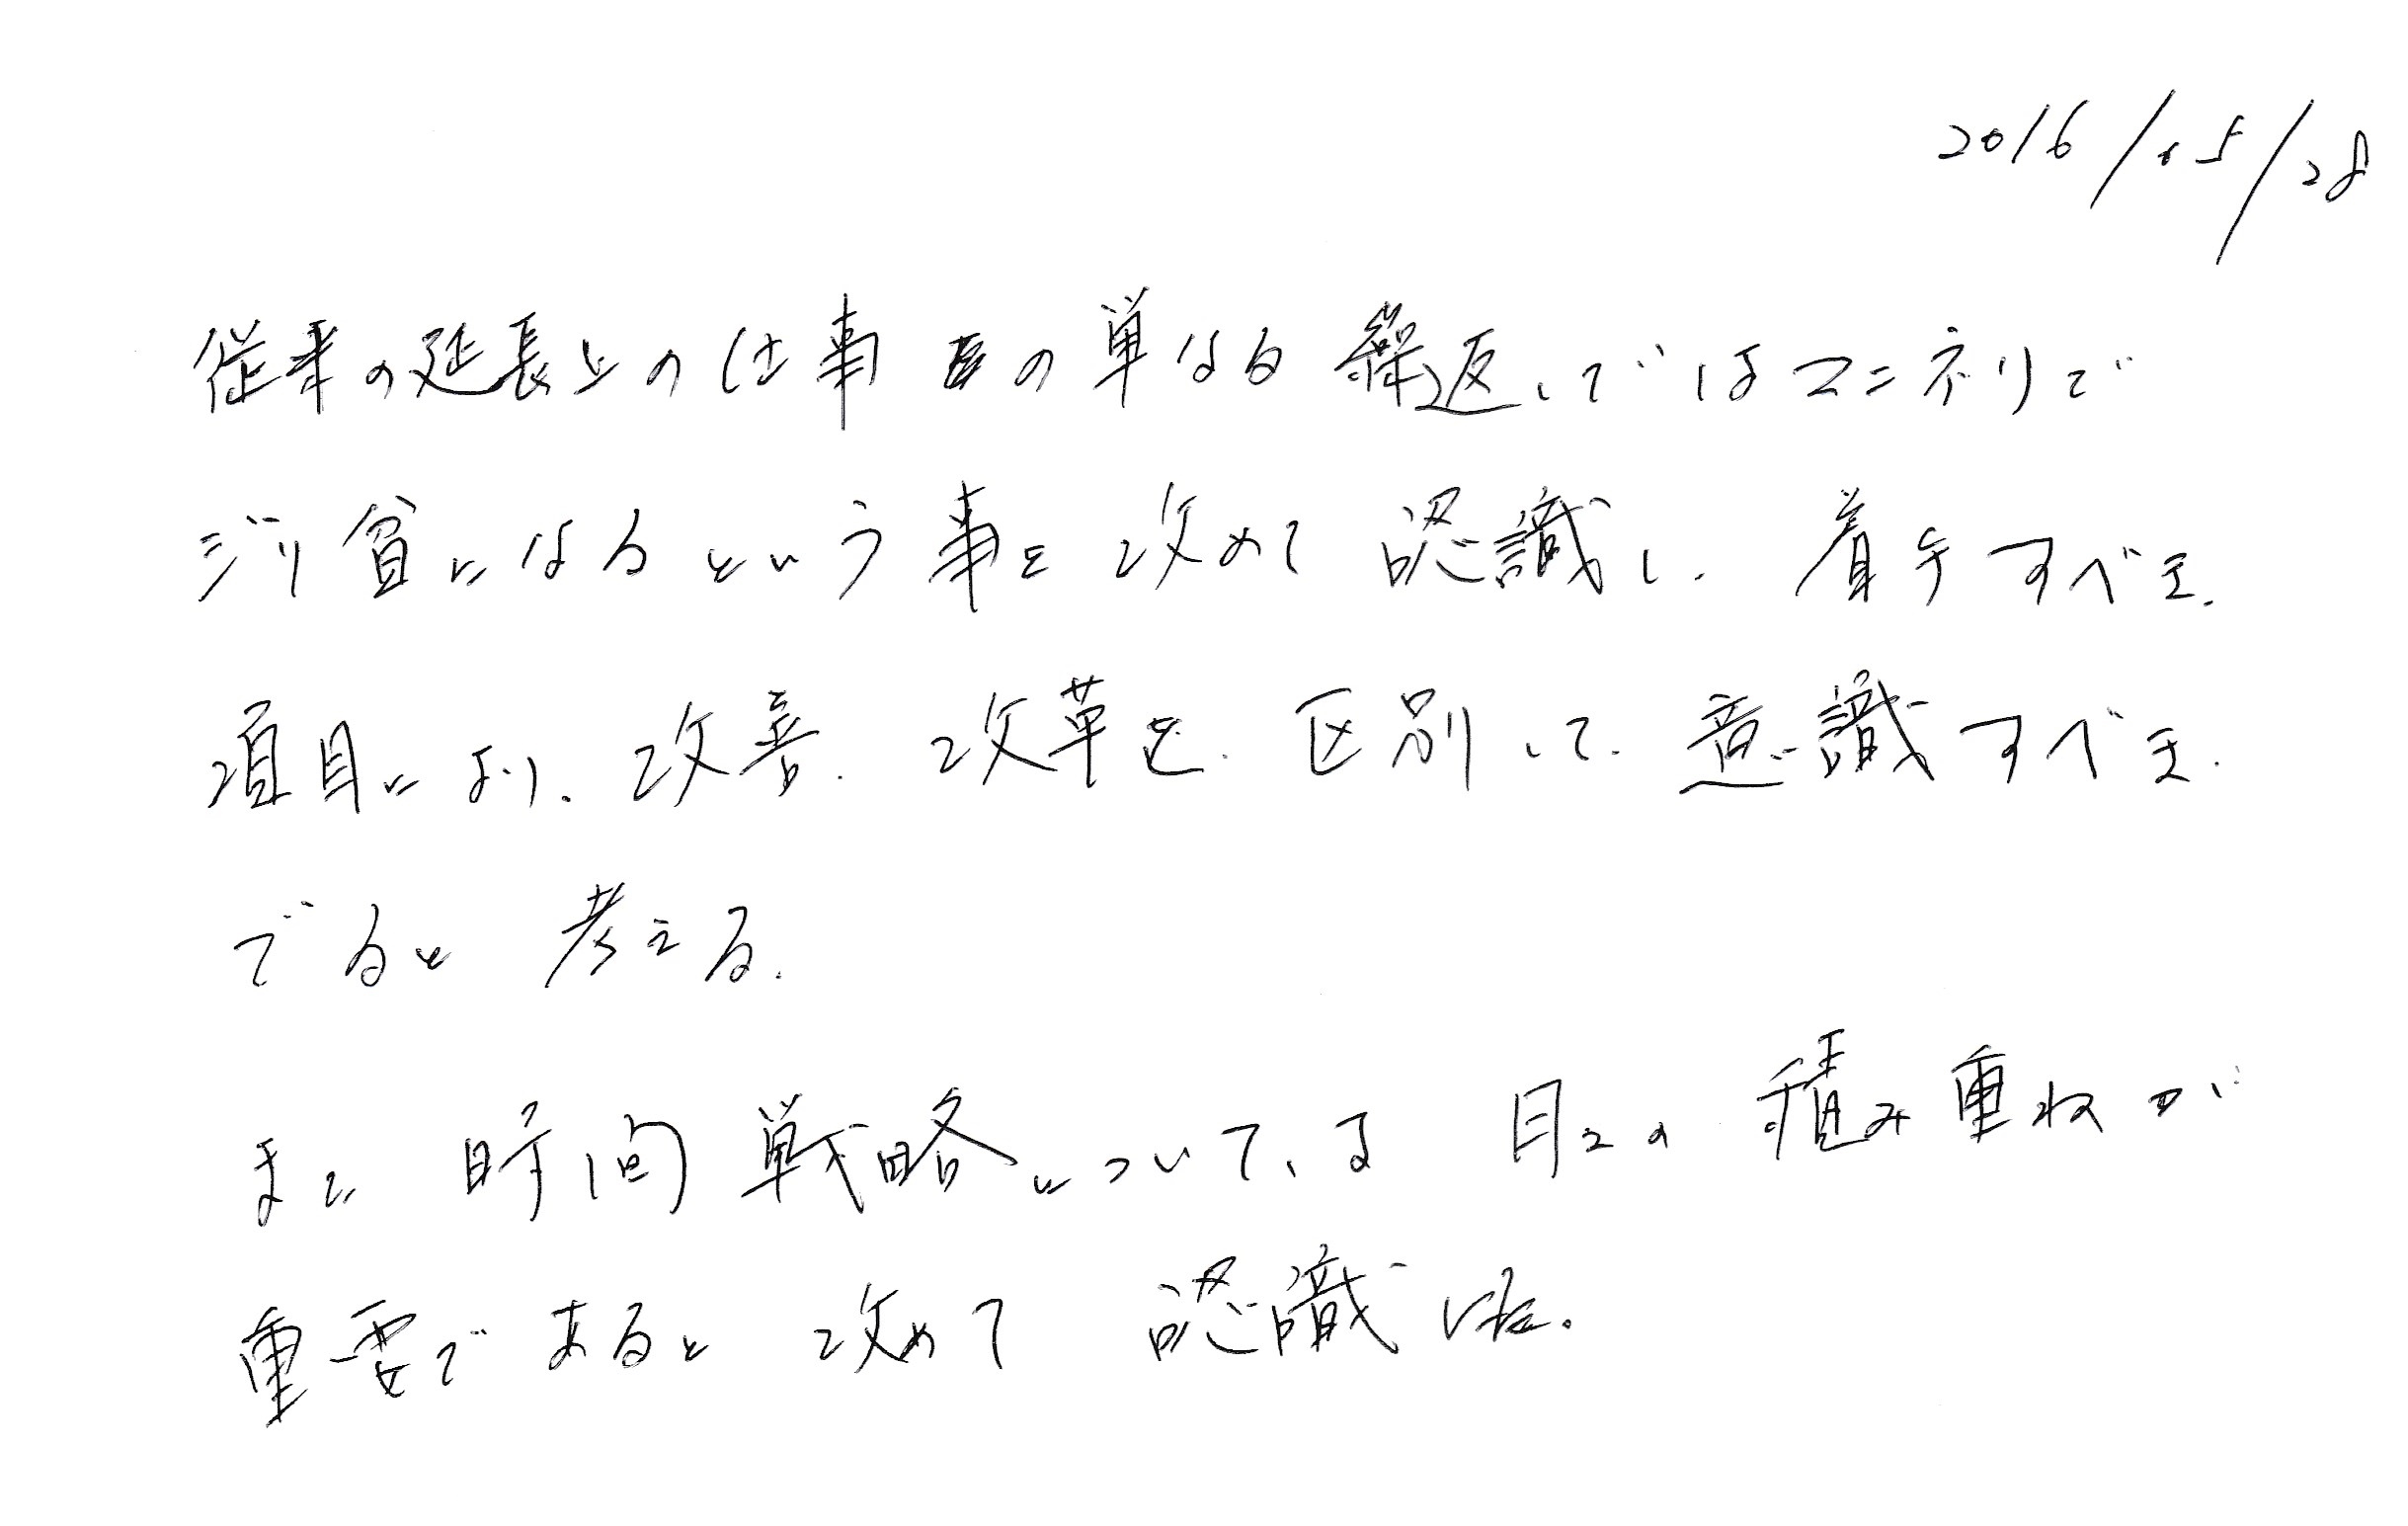 2016/05/28
従来の延長上の仕事の単なる繰返しではマンネリで
ジリ貧になるという事を改めて認識し、着手すべき、
項目により、改善、改革を、区別して、意識すべき、
でると考える。
また 時間戦略については 日々の積み重ねが
重要であると改めて 認識した。